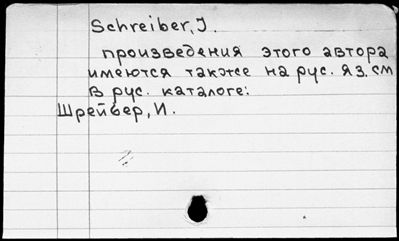 Schreiber, J.
произведения этого автора
имеются также на рус. яз. см
в рус. каталоге:
Шрейбер, И.